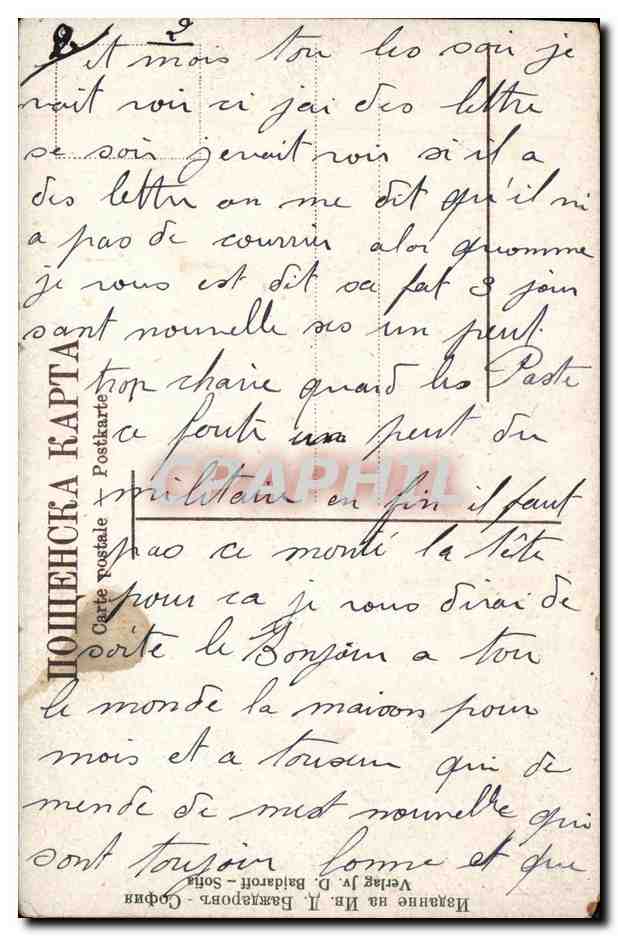 2 2
et mois tou les soir je
vait voir ci jai des lettre
se soir jevait voir si il a
des lettre on me dit qu'il ni
a pas de courrier alor quomme
je vous est dit sa fat 3 jour
sant nouvelle ses un peut
trop chaire quand les Poste
ce foute un peut du
militaire en fin il faut
pas ce monté la tête
pour ca je vous dirai de
soite le Bonjour a tou
le monde la maison pour
mois et a touseux qui de
mende de mest nouvelle qui
sont toujour bonne et que
ПОЩЕНСКА КАРТА
Carte postale – Postkarte
Издание на Ив. Д. Баждаровъ - София
Verlag Jv. D. Bajdaroff – Sofia
CRAPHIL